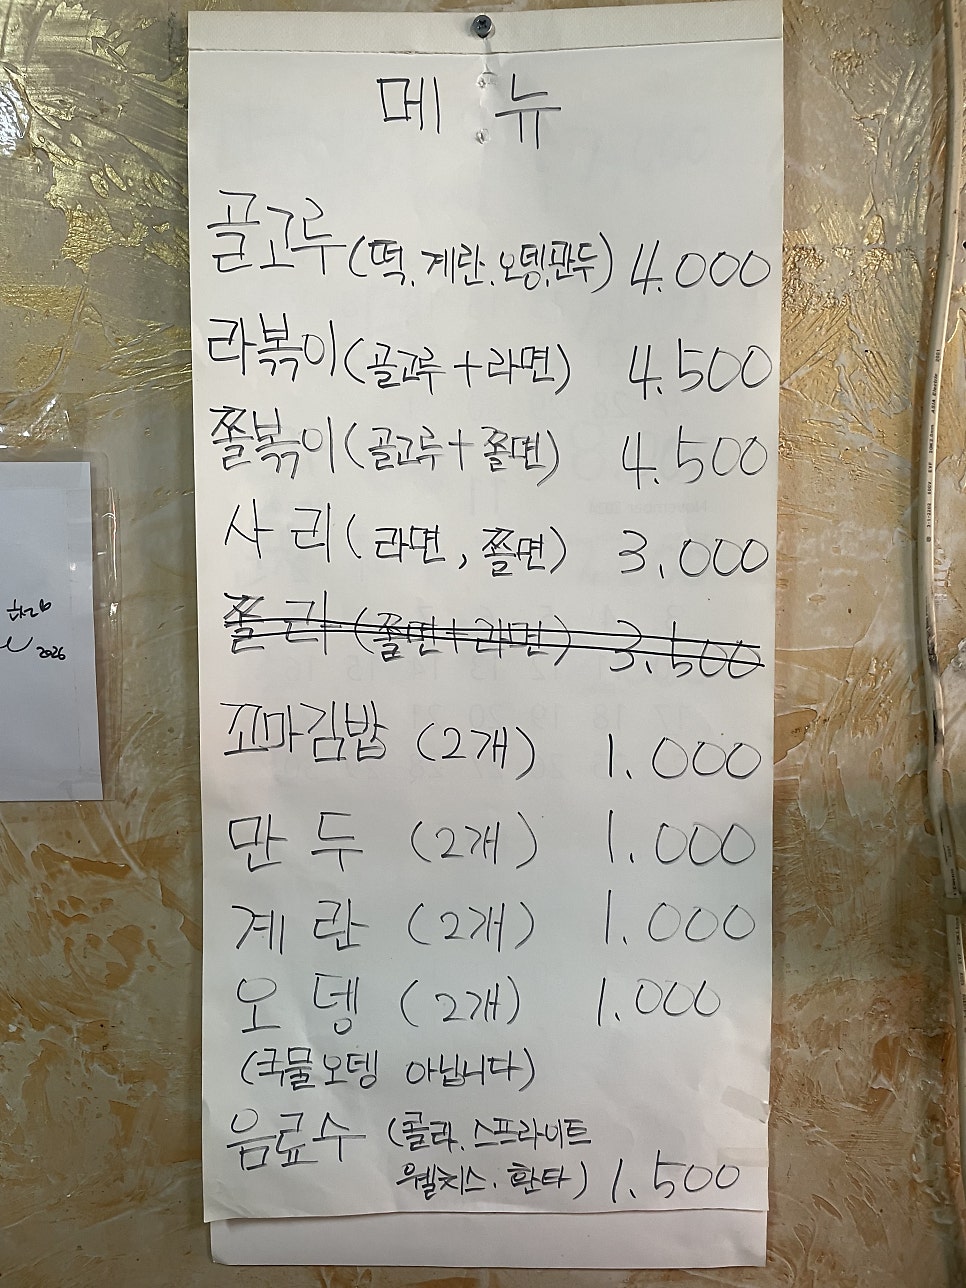 메뉴
골고루 (떡. 계란. 오뎅. 만두) 4.000
라볶이 (골고루 + 라면) 4.500
쫄볶이 (골고루 + 쫄면) 4.500
사리 (라면, 쫄면) 3.000
쫄리 (쫄면+라면) 3.500
꼬마김밥 (2개) 1.000
만두 (2개) 1.000
계란 (2개) 1.000
오뎅 (2개) 1.000
(국물오뎅 아닙니다)
음료수 (콜라. 스프라이트
웰치스. 환타) 1.500
2026